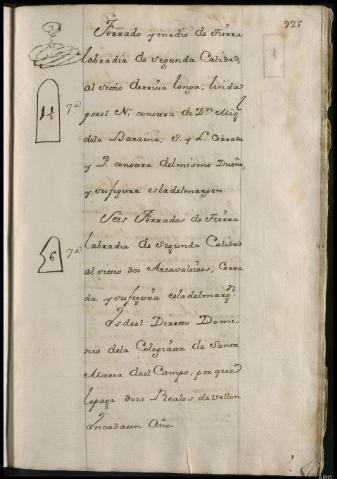 925
Ferrado y medio de tierra
labradia de segunda Calidad,
al sitio de rriva longa, linda
por el N. con otra de Dn. Migl
1½ 7.a
dela Barrera, S. y L. Cerrada
y P. con otra del mismo Dueño,
y, su figura es la del margen
Seis Ferrados de tierra
labradia de segunda Calidad
6 7.a
al sitio dos Arcavaleires, Cerra
da y su figura es la del margn
Es deel Directo Domi-
nio dela Colegiata de Santa
Maria deel Campo, por que
le paga doze Reales de vellon
En cada un Año.